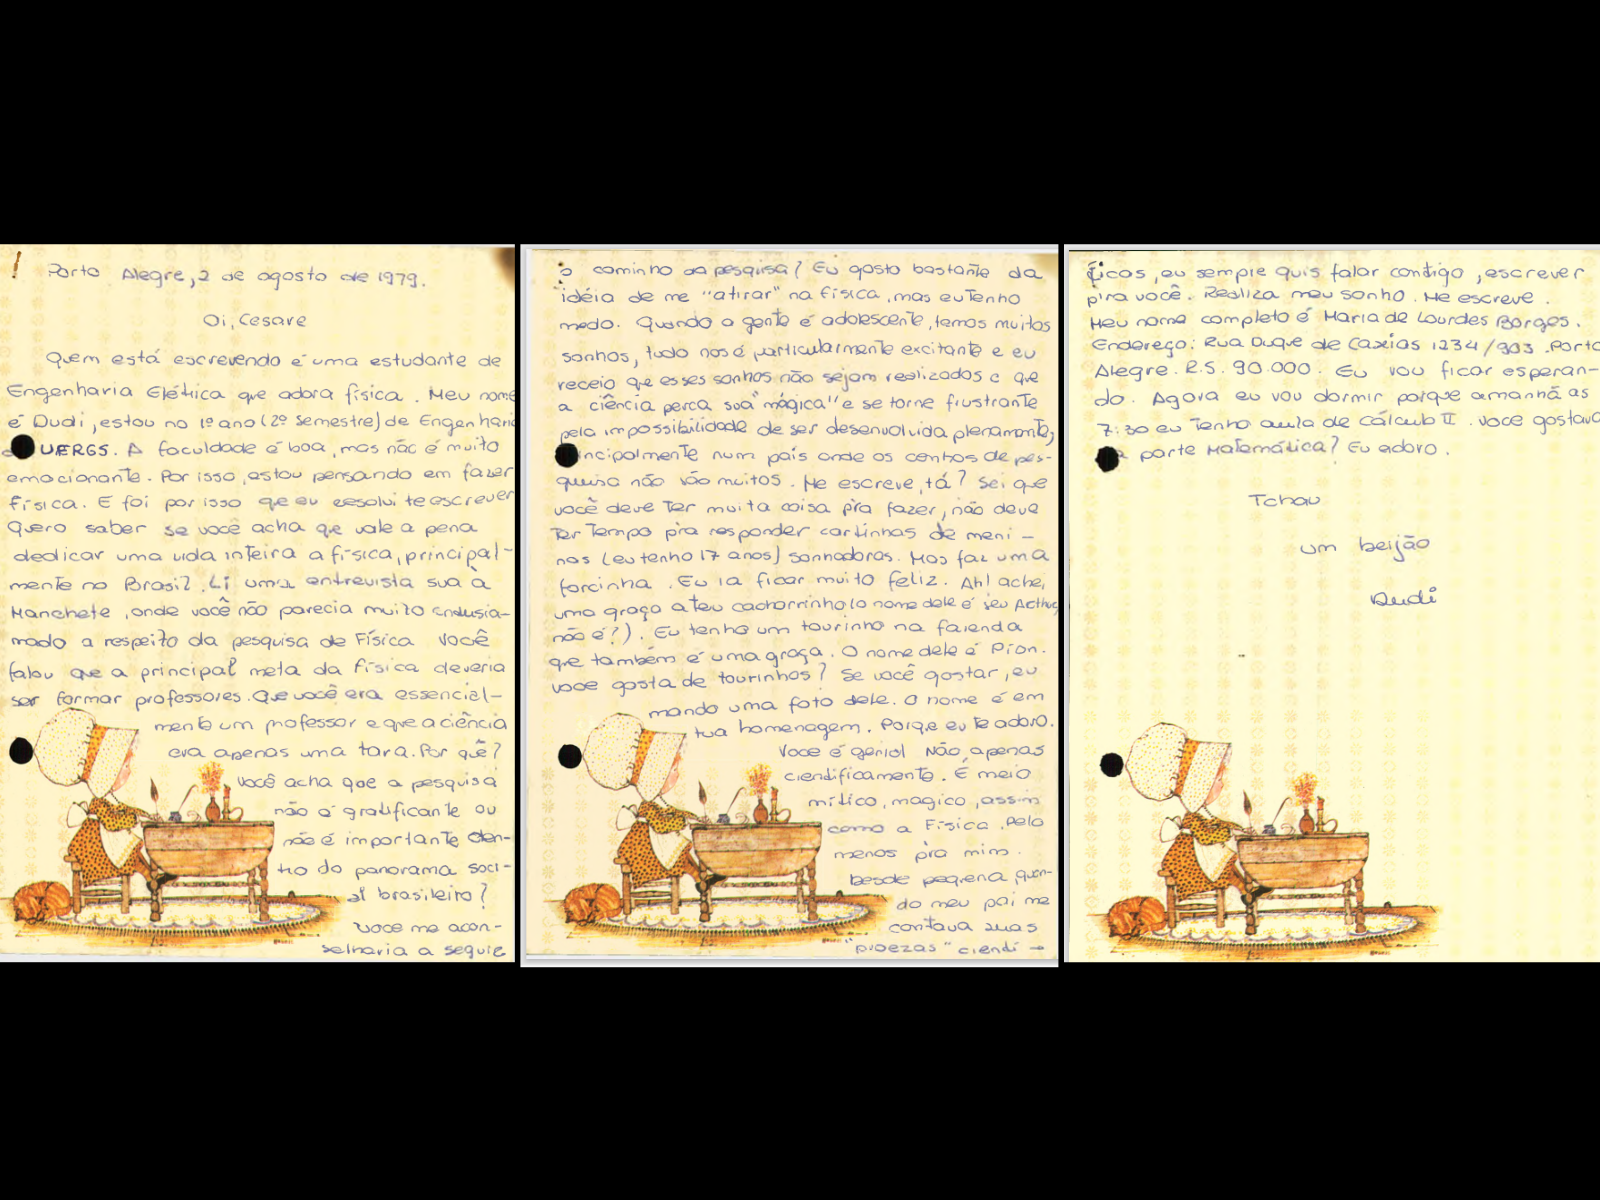 Porto Alegre, 2 de agosto de 1979.
Oi, Cesare
Quem está escrevendo é uma estudante de
Engenharia Elétrica que adora física. Meu nome
é Dudi, estou no 1º ano (2º semestre) de Engenharia
UFRGS. A faculdade é boa, mas não é muito
emocionante. Por isso, estou pensando em fazer
Física. E foi por isso que eu resolvi te escrever
Quero saber se você acha que vale a pena
dedicar uma vida inteira a física, principal-
mente no Brasil. Li uma entrevista sua à
Manchete, onde você não parecia muito entusia-
mado a respeito da pesquisa de Física Você
falou que a principal meta da física deveria
ser formar professores. Que você era essencial-
mente um professor e que a ciência
era apenas uma tara. Por quê?
Você acha que a pesquisa
não é gratificante ou
não é importante den-
tro do panorama soci-
al brasileiro?
Você me acon-
selharia a seguir
o caminho da pesquisa? Eu gosto bastante da
idéia de me "atirar" na física, mas eu tenho
medo. Quando a gente é adolescente, temos muitos
sonhos, tudo nos é particularmente excitante e eu
receio que esses sonhos não sejam realizados e que
a ciência perca sua "mágica" e se torne frustrante
pela impossibilidade de ser desenvolvida plenamente,
principalmente num país onde os centros de pes-
quisa não são muitos. Me escreve, tá? Sei que
você deve ter muita coisa pra fazer, não deve
ter tempo pra responder cartinhas de meni-
nas (eu tenho 17 anos) sonhadoras. Mas faz uma
forcinha. Eu ia ficar muito feliz. Ah! achei
uma graça a teu cachorrinho (o nome dele é seu Arthur,
não é?). Eu tenho um tourinho na fazenda
que também é uma graça. O nome dele é Píon.
Você gosta de tourinhos? Se você gostar, eu
mando uma foto dele. O nome é em
tua homenagem. Porque eu te adoro.
Você é genial Não apenas
cientificamente. É meio
mítico, magico, assim
como a Física. Pelo
menos pra mim.
Desde pequena, quan-
do meu pai me
contava suas
"proezas" cientí →
ficas, eu sempre quis falar contigo, escrever
pra você. Realiza meu sonho. Me escreve.
Meu nome completo é Maria de Lourdes Borges.
Endereço: Rua Duque de Caxias 1234/903. Porto
Alegre. R.S. 90.000. Eu vou ficar esperan-
do. Agora eu vou dormir porque amanhã as
7:30 eu tenho aula de Cálculo II. Você gostava
da parte Matemática? Eu adoro.
Tchau
um beijão
Dudi